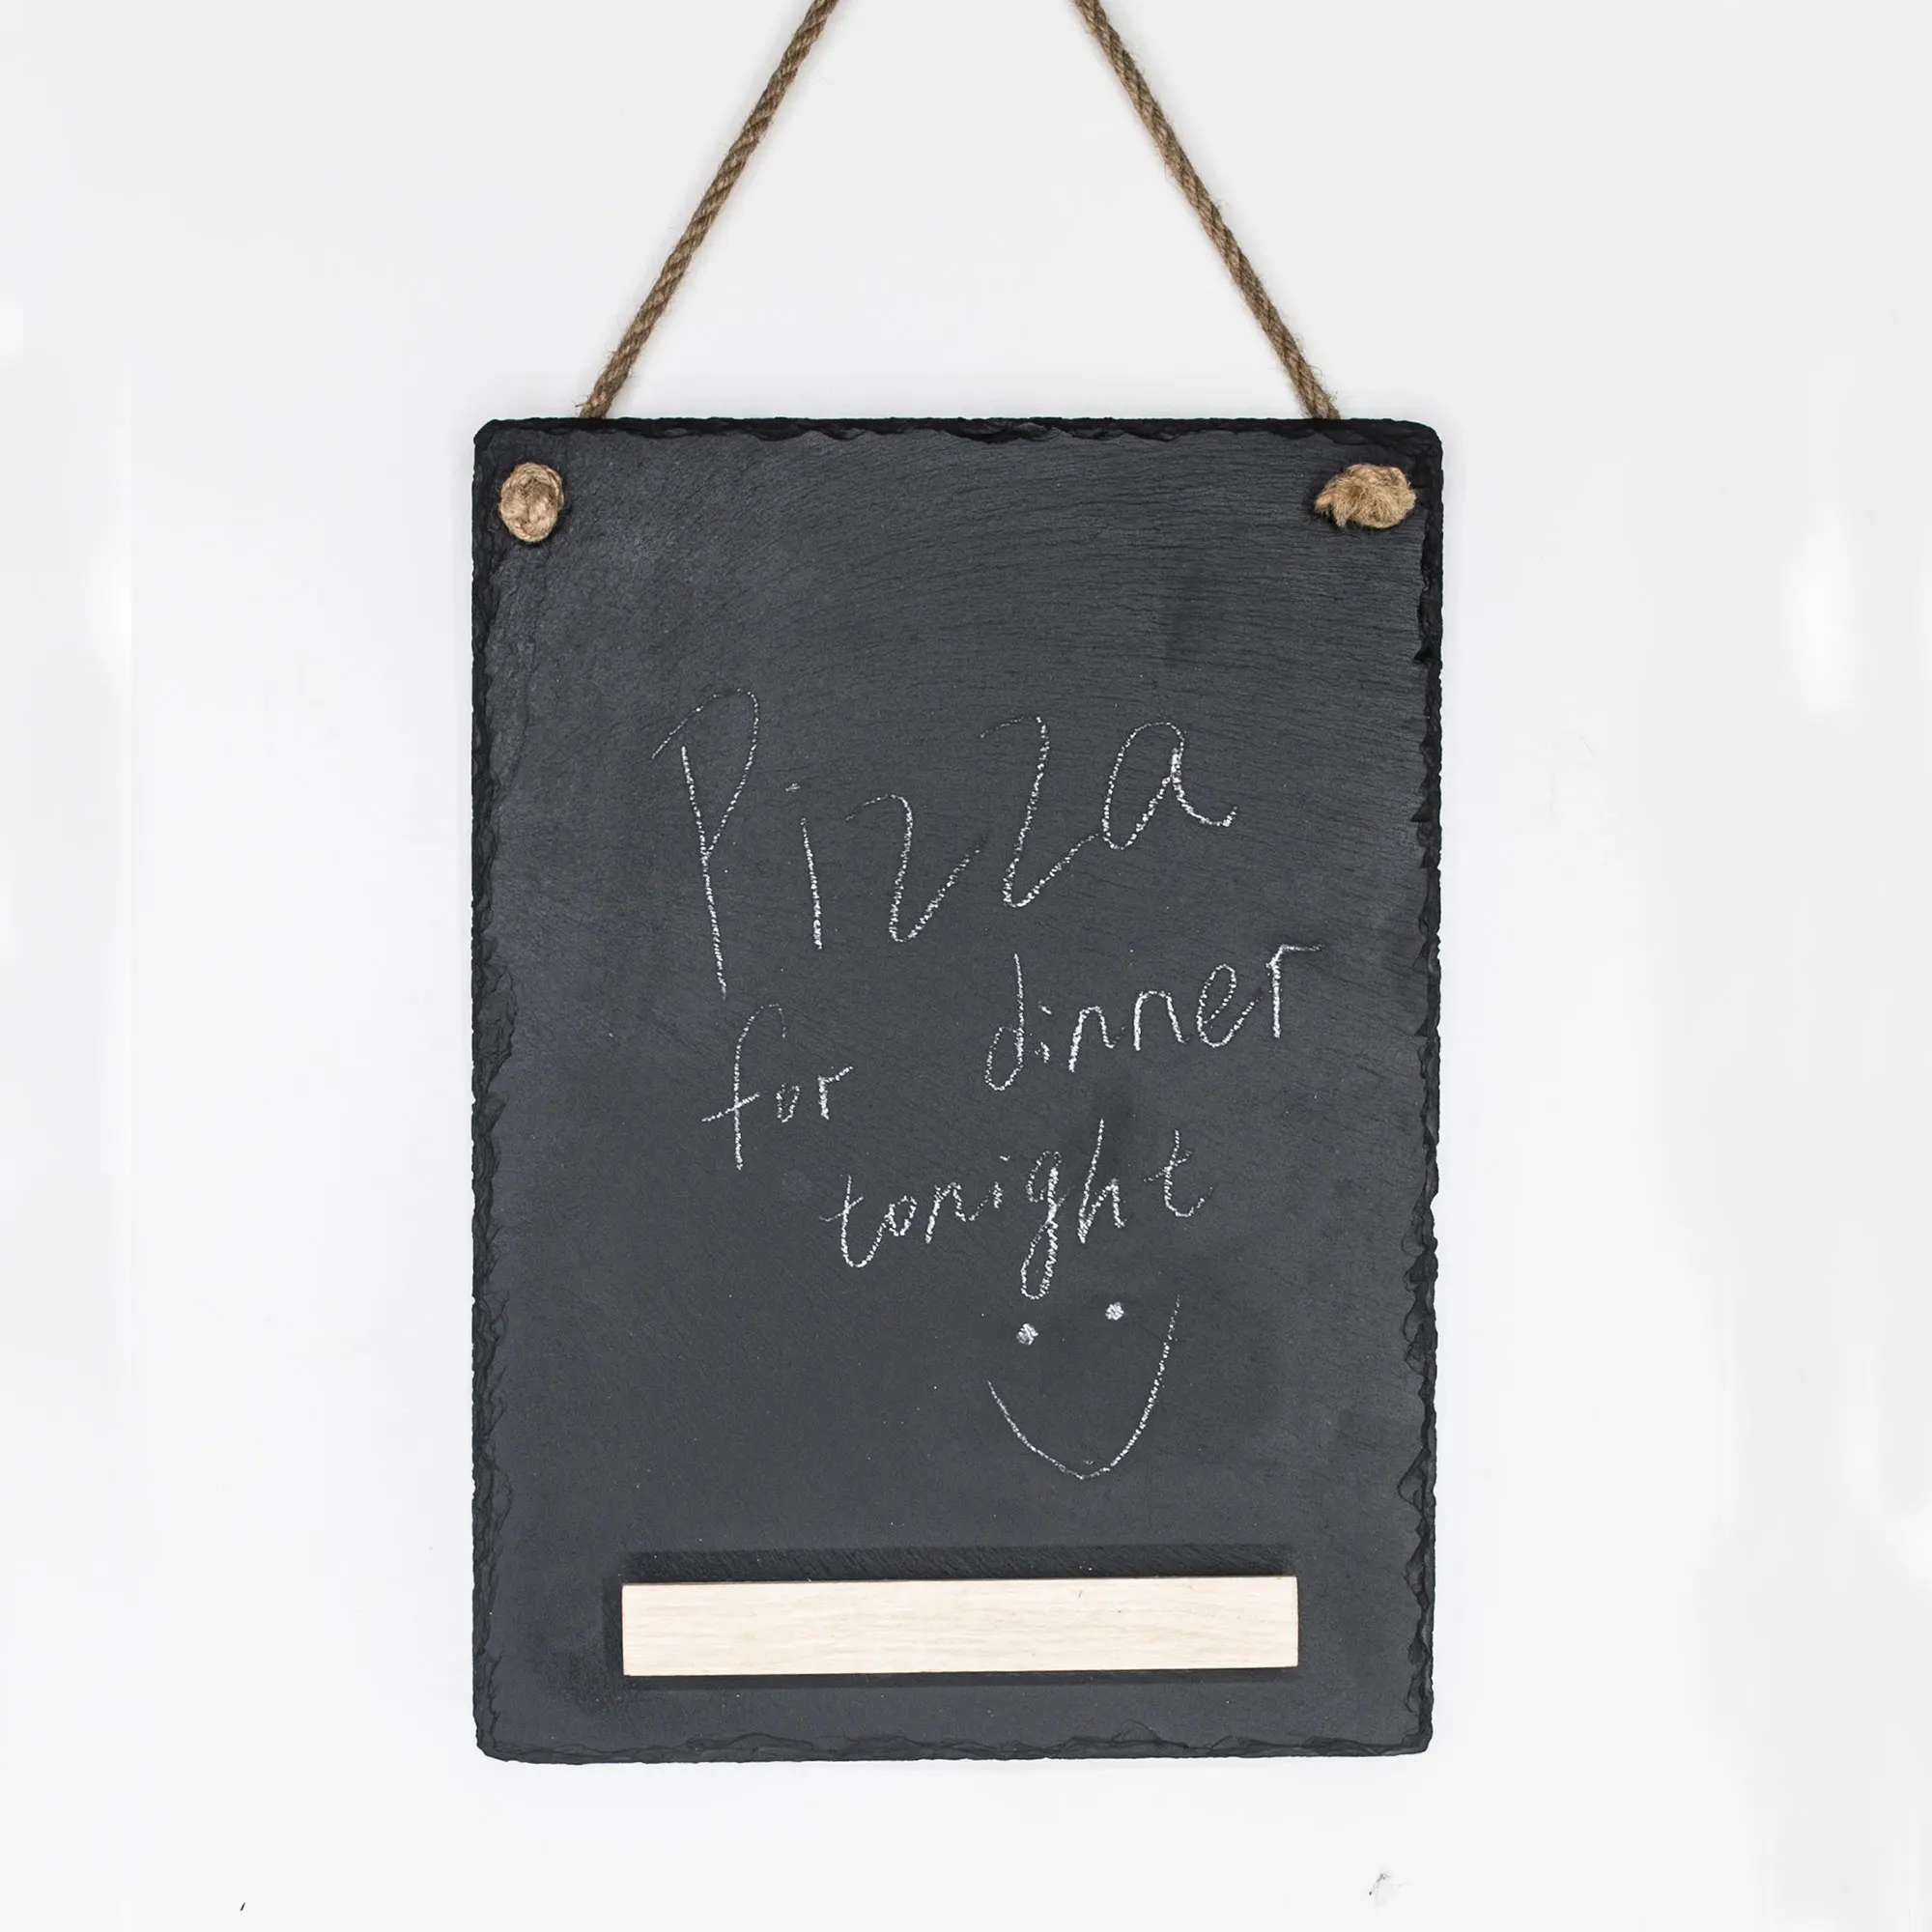 Pizza
for dinner
tonight